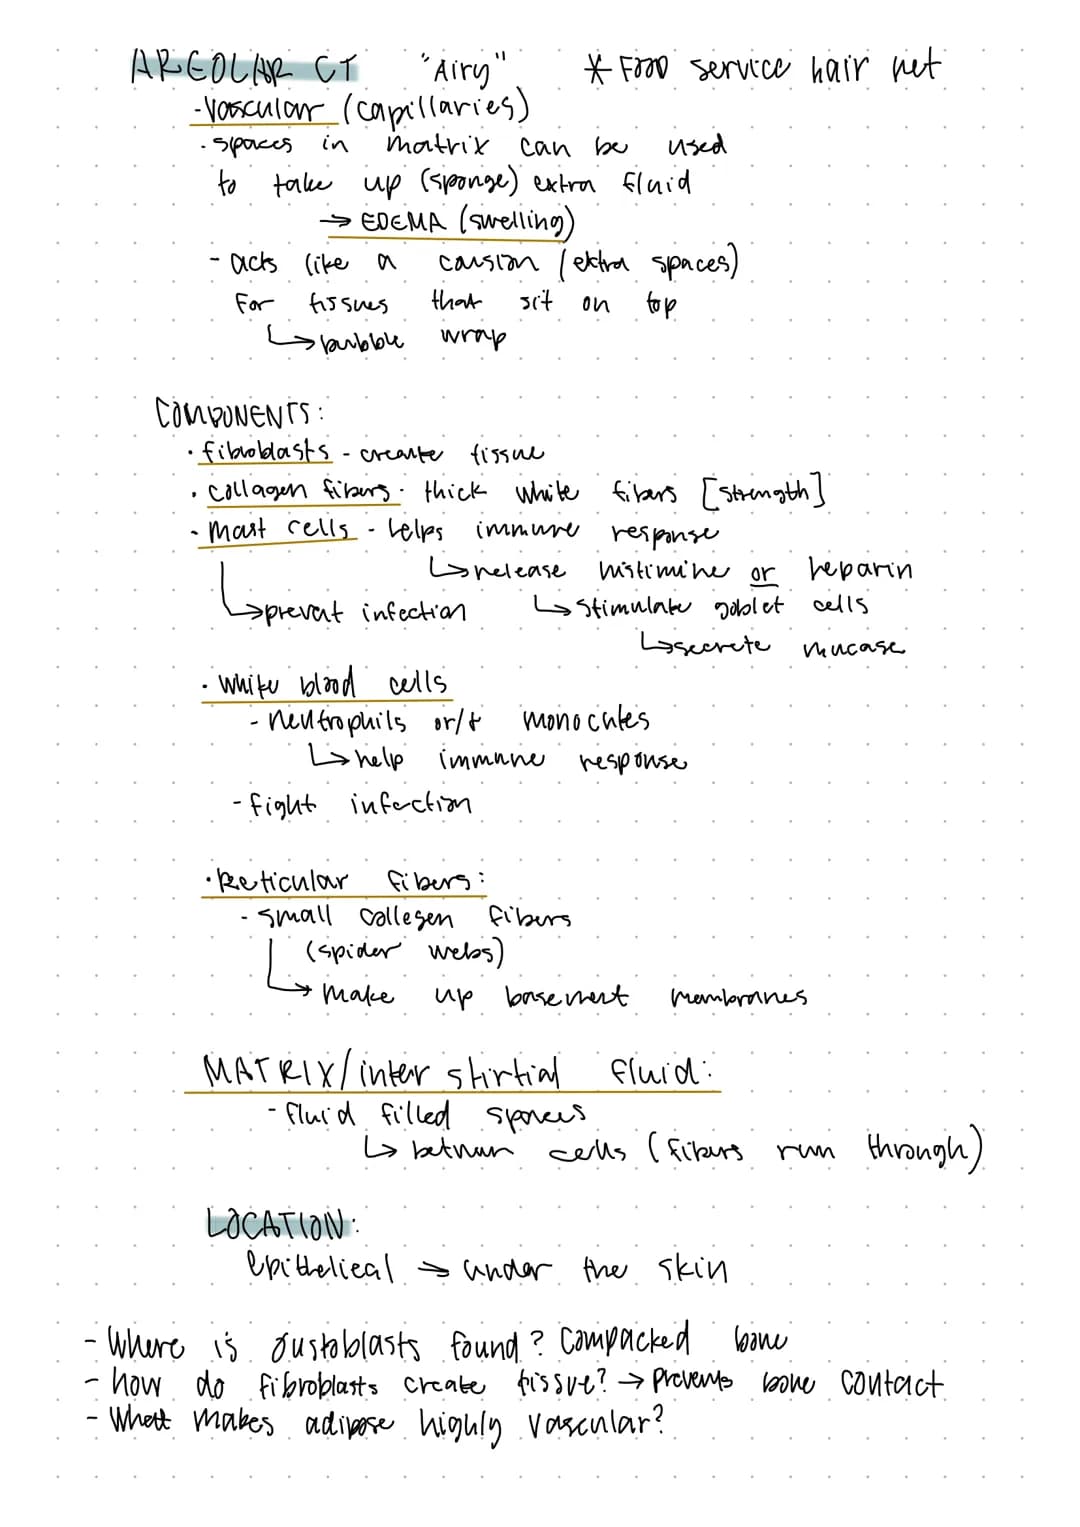 AREOLAR CT "Airy" * Food service hair net
- Vascular (capillaries)
· spaces in matrix can be used
to take up (sponge) extra fluid
→ EDEMA (swelling)
- acts like a causion (extra spaces)
For tissues that sit on top
↳ bubble wrap
COMPONENTS:
· fibroblasts - create tissue
· collagen fibers · thick white fibers [strength]
· Mast cells - helps immune response
↳ release histimine or heparin
↳ prevent infection ↳ stimulate goblet cells
↳ secrete mucase
· White blood cells
- neutrophils or/+ monocytes
↳ help immune response
- fight infection
· Reticular fibers:
- small collegen fibers
(spider webs)
↳ make up basement membranes
MATRIX/inter stirtial fluid:
- fluid filled spaces
↳ between cells (fibers run through)
LOCATION:
Epithelieal → under the skin
- Where is oustoblasts found? Compacked bone
- how do fibroblasts create tissue? → Prevents bone contact
- What makes adipose highly vascular?